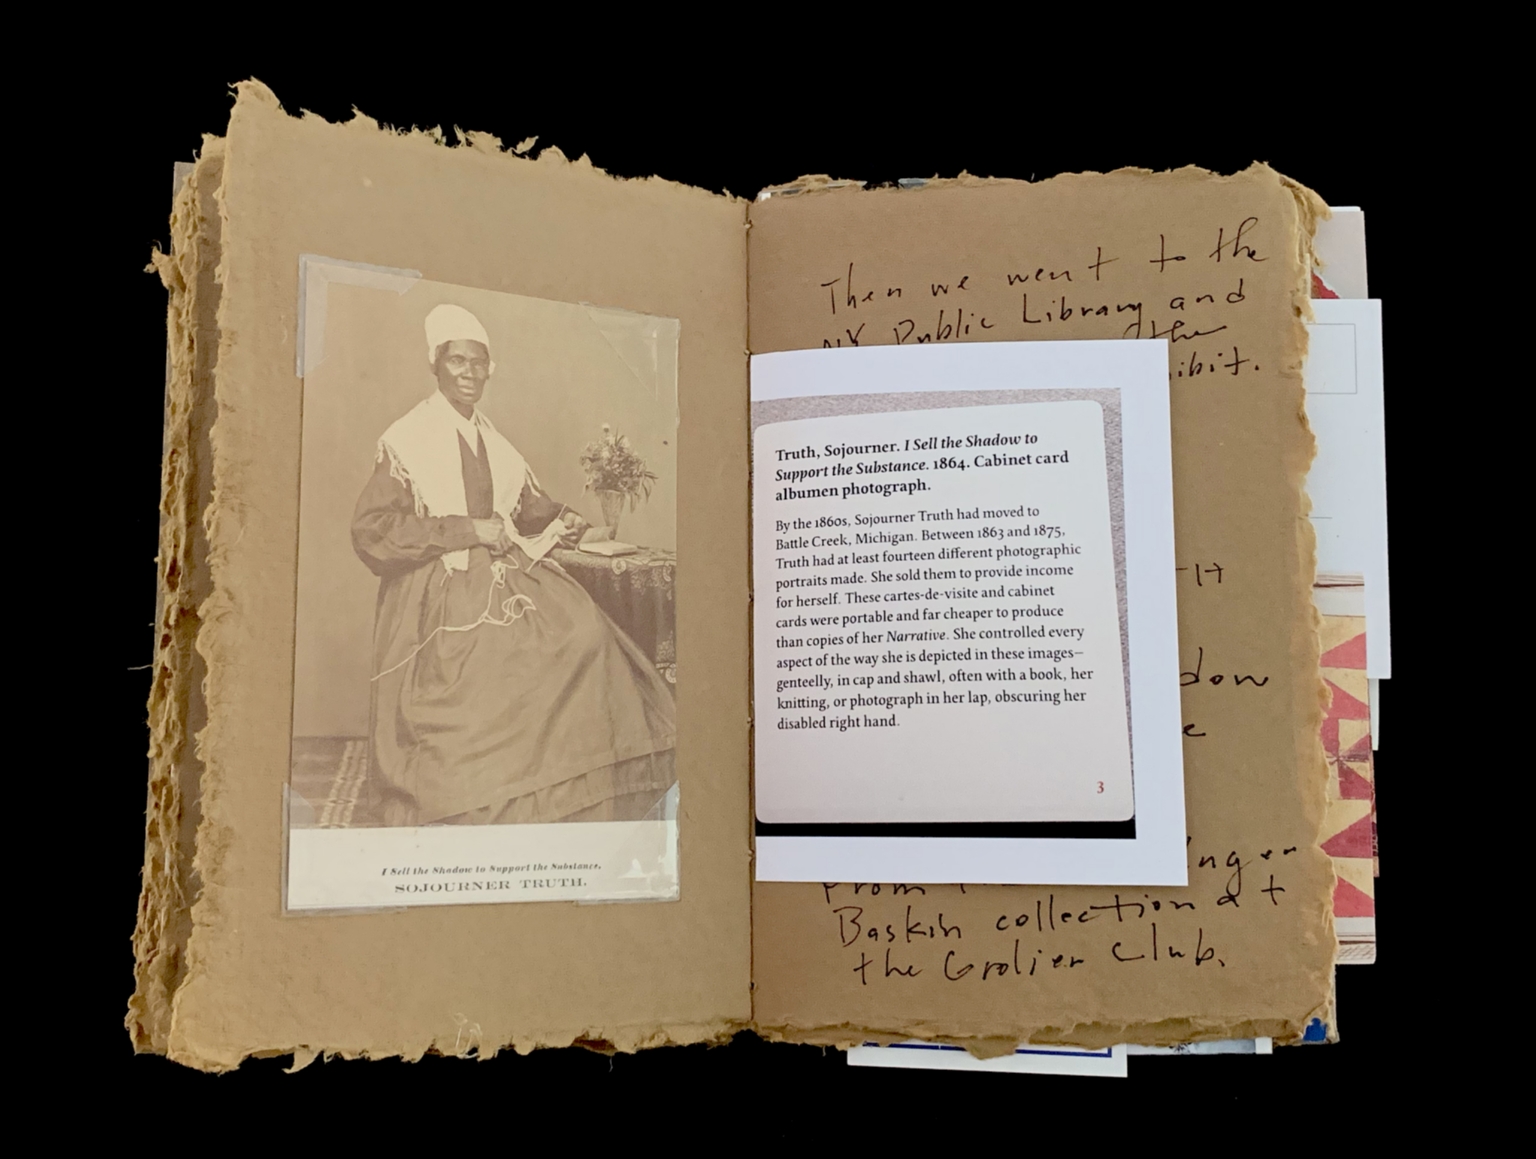 I Sell the Shadow to Support the Substance.
SOJOURNER TRUTH.
Then we went to the
NY Public Library and
the
ibit.
Truth, Sojourner. I Sell the Shadow to
Support the Substance. 1864. Cabinet card
albumen photograph.
By the 1860s, Sojourner Truth had moved to
Battle Creek, Michigan. Between 1863 and 1875,
Truth had at least fourteen different photographic
portraits made. She sold them to provide income
for herself. These cartes-de-visite and cabinet
cards were portable and far cheaper to produce
than copies of her Narrative. She controlled every
aspect of the way she is depicted in these images—
genteelly, in cap and shawl, often with a book, her
knitting, or photograph in her lap, obscuring her
disabled right hand.
3
dow
e
inger
From
Baskin collection at
the Grolier Club.